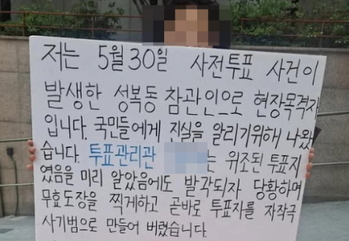 저는 5월30일 사전투표 사건이
발생한 성복동 참관인으로 현장목격자
입니다. 국민들에게 진실을 알리기위해 나왔
습니다. 투표관리관 는 위조된 투표지
였음을 미리 알았음에도 발각되자 당황하며
무효도장을 찍게하고 곧바로 투표자를 자작극
사기범으로 만들어 버렸습니다.